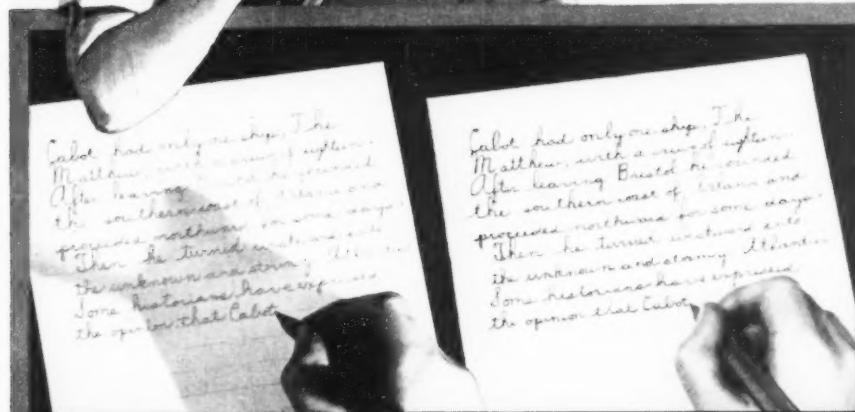 Cabot had only one ship, The
Matthew, with a crew of eighteen.
After leaving he rounded
the southern coast of Ireland and
proceeded northward for some days.
Then he turned westward into
the unknown and stormy Atlantic
Some historians have expressed
the opinion that Cabot
Cabot had only one ship, The
Matthew, with a crew of eighteen.
After leaving Bristol he rounded
the southern coast of Ireland and
proceeded northward for some days.
Then he turned westward into
the unknown and stormy Atlantic.
Some historians have expressed
the opinion that Cabot